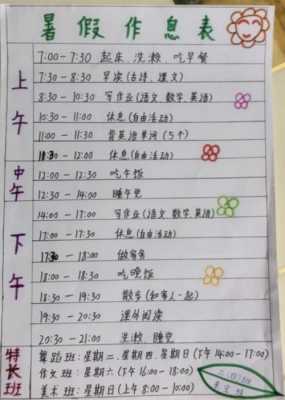 暑假作息表
上午
7:00-7:30 起床、洗漱、吃早餐
7:30-8:30 早读(古诗、课文)
8:30-10:30 写作业(语文 数学 英语)
10:30-11:00 休息(自由活动)
11:00-11:30 背英语单词(5个)
11:30-12:00 休息(自由活动)
中午
12:00-12:30 吃午饭
12:30-14:00 睡午觉
下午
14:00-17:00 写作业(语文 数学 英语)
17:00-17:30 休息(自由活动)
17:30-18:00 做家务
18:00-18:30 吃晚饭
18:30-19:30 散步(和家人一起)
19:30-20:30 课外阅读
20:30-21:00 洗漱 睡觉
特长班
舞蹈班:星期二、星期四、星期日(下午14:00-17:00)
作文班:星期六(下午16:00-18:00)
美术班:星期日(上午8:00-10:00)